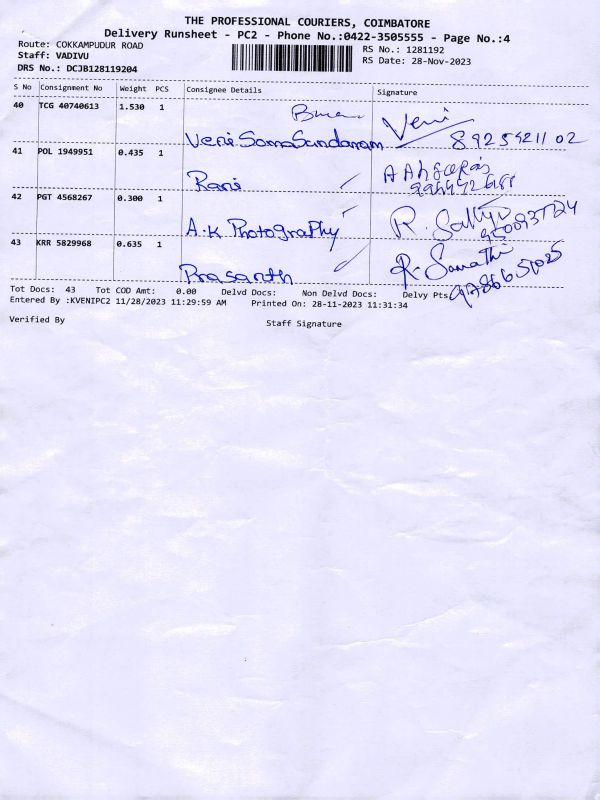 THE PROFESSIONAL COURIERS, COIMBATORE
Delivery Runsheet - PC2 - Phone No.:0422-3505555 - Page No.:4
Route: COKKAMPUDUR ROAD
RS No.: 1281192
Staff: VADIVU
RS Date: 28-Nov-2023
DRS No.: DCJB128119204
S No Consignment No Weight PCS Consignee Details Signature
40 TCG 40740613 1.530 1
Veni
Veni.SomaSundaram 8925921102
41 POL 1949951 0.435 1
Rani
42 PGT 4568267 0.300 1
A.K Photography
43 KRR 5829968 0.635 1
Prasanth
Tot Docs: 43 Tot COD Amt: 0.00 Delvd Docs: Non Delvd Docs: Delvy Pts
Entered By :KVENIPC2 11/28/2023 11:29:59 AM Printed On: 28-11-2023 11:31:34
Verified By
Staff Signature